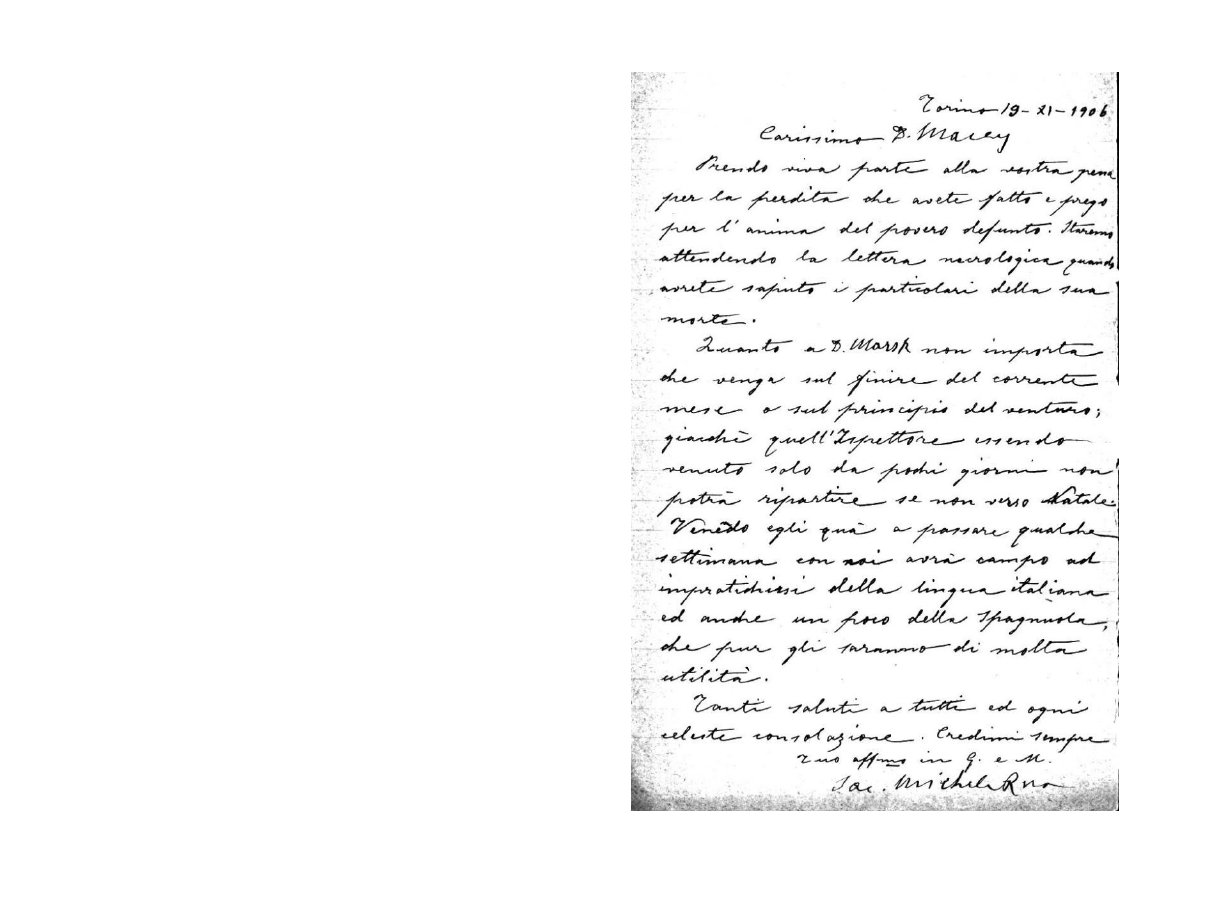 Torino 19-XI-1906
Carissimo D. Macey
Prendo viva parte alla vostra pena
per la perdita che avete fatto e prego
per l'anima del povero defunto. Staremo
attendendo la lettera necrologica quando
avrete saputo i particolari della sua
morte.
Quanto a D. Marsh non importa
che venga sul finire del corrente
mese o sul principio del venturo;
giacchè quell'Ispettore essendo
venuto solo da pochi giorni non
potrà ripartire se non verso Natale.
Venedo egli quà a passare qualche
settimana con noi avrà campo ad
impratichirsi della lingua italiana
ed anche un poco della Spagnuola,
che pur gli saranno di molta
utilità.
Tanti saluti a tutti ed ogni
celeste consolazione. Credimi sempre
Tuo affmo in G. e M.
Sac. Michele Rua